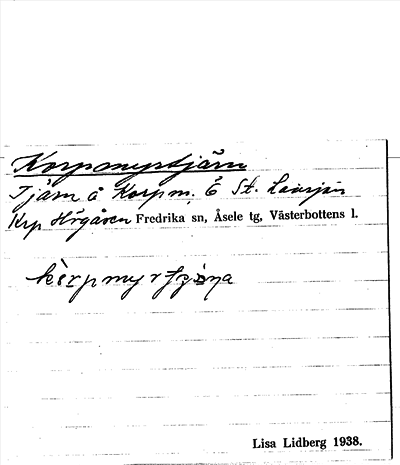 Korpmyrtjärn
Tjärn å Korpm. Ö St. Lavsjön
Krp Högåsen Fredrika sn, Åsele tg, Västerbottens l.
Lisa Lidberg 1938.